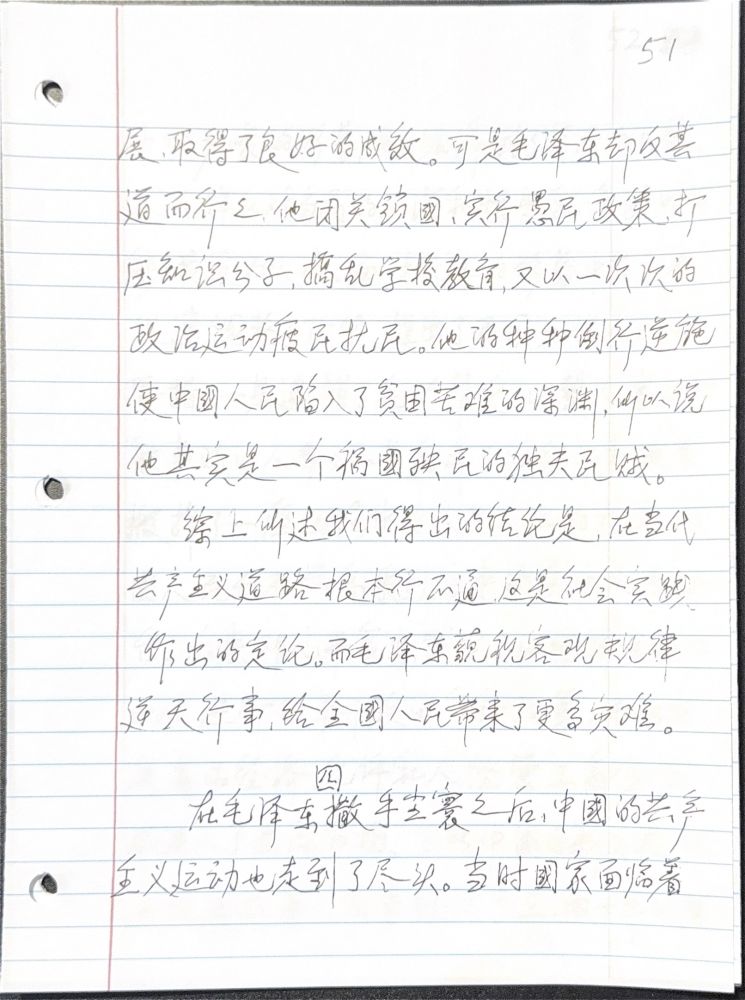 51
展,取得了良好的成效。可是毛泽东却反其
道而行之,他闭关锁國,实行愚民政策,打
压知识分子,搞乱学校教育,又以一次次的
政治运动疲民扰民。他的种种倒行逆施
使中國人民陷入了贫困苦难的深渊,所以说
他其实是一个祸國殃民的独夫民贼。
综上所述我们得出的结论是,在当代
共产主义道路根本行不通,这是社会实践
作出的定论。而毛泽东藐视客观规律
逆天行事,给全國人民带来了更多灾难。
四
在毛泽东撒手尘寰之后,中國的共产
主义运动也走到了尽头。当时國家面临着